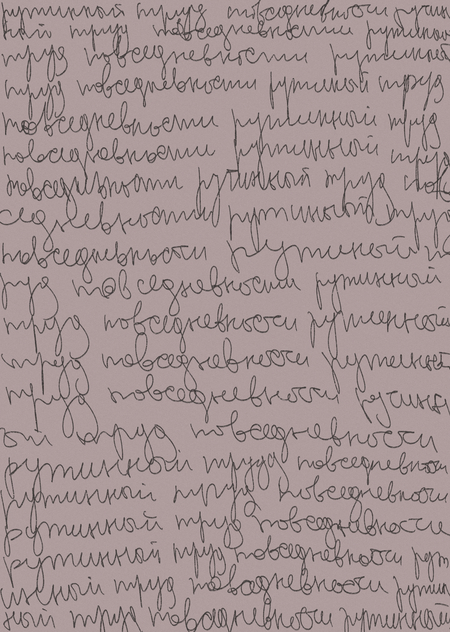 рутинный труд повседневности рутин
ный труд повседневности рутинный
труд повседневности рутинный
труд повседневности рутинный труд
повседневности рутинный труд
повседневности рутинный труд
повседневности рутинный труд пов
седневности рутинный труд
повседневности рутинный т
руд повседневности рутинный
труд повседневности рутинный
труд повседневности рутинный
труд повседневности рутинн
ый труд повседневности
рутинный труд повседневности
рутинный труд повседневности
рутинный труд повседневности
рутинный труд повседневности рут
инный труд повседневности рутин
ный труд повседневности рутинный